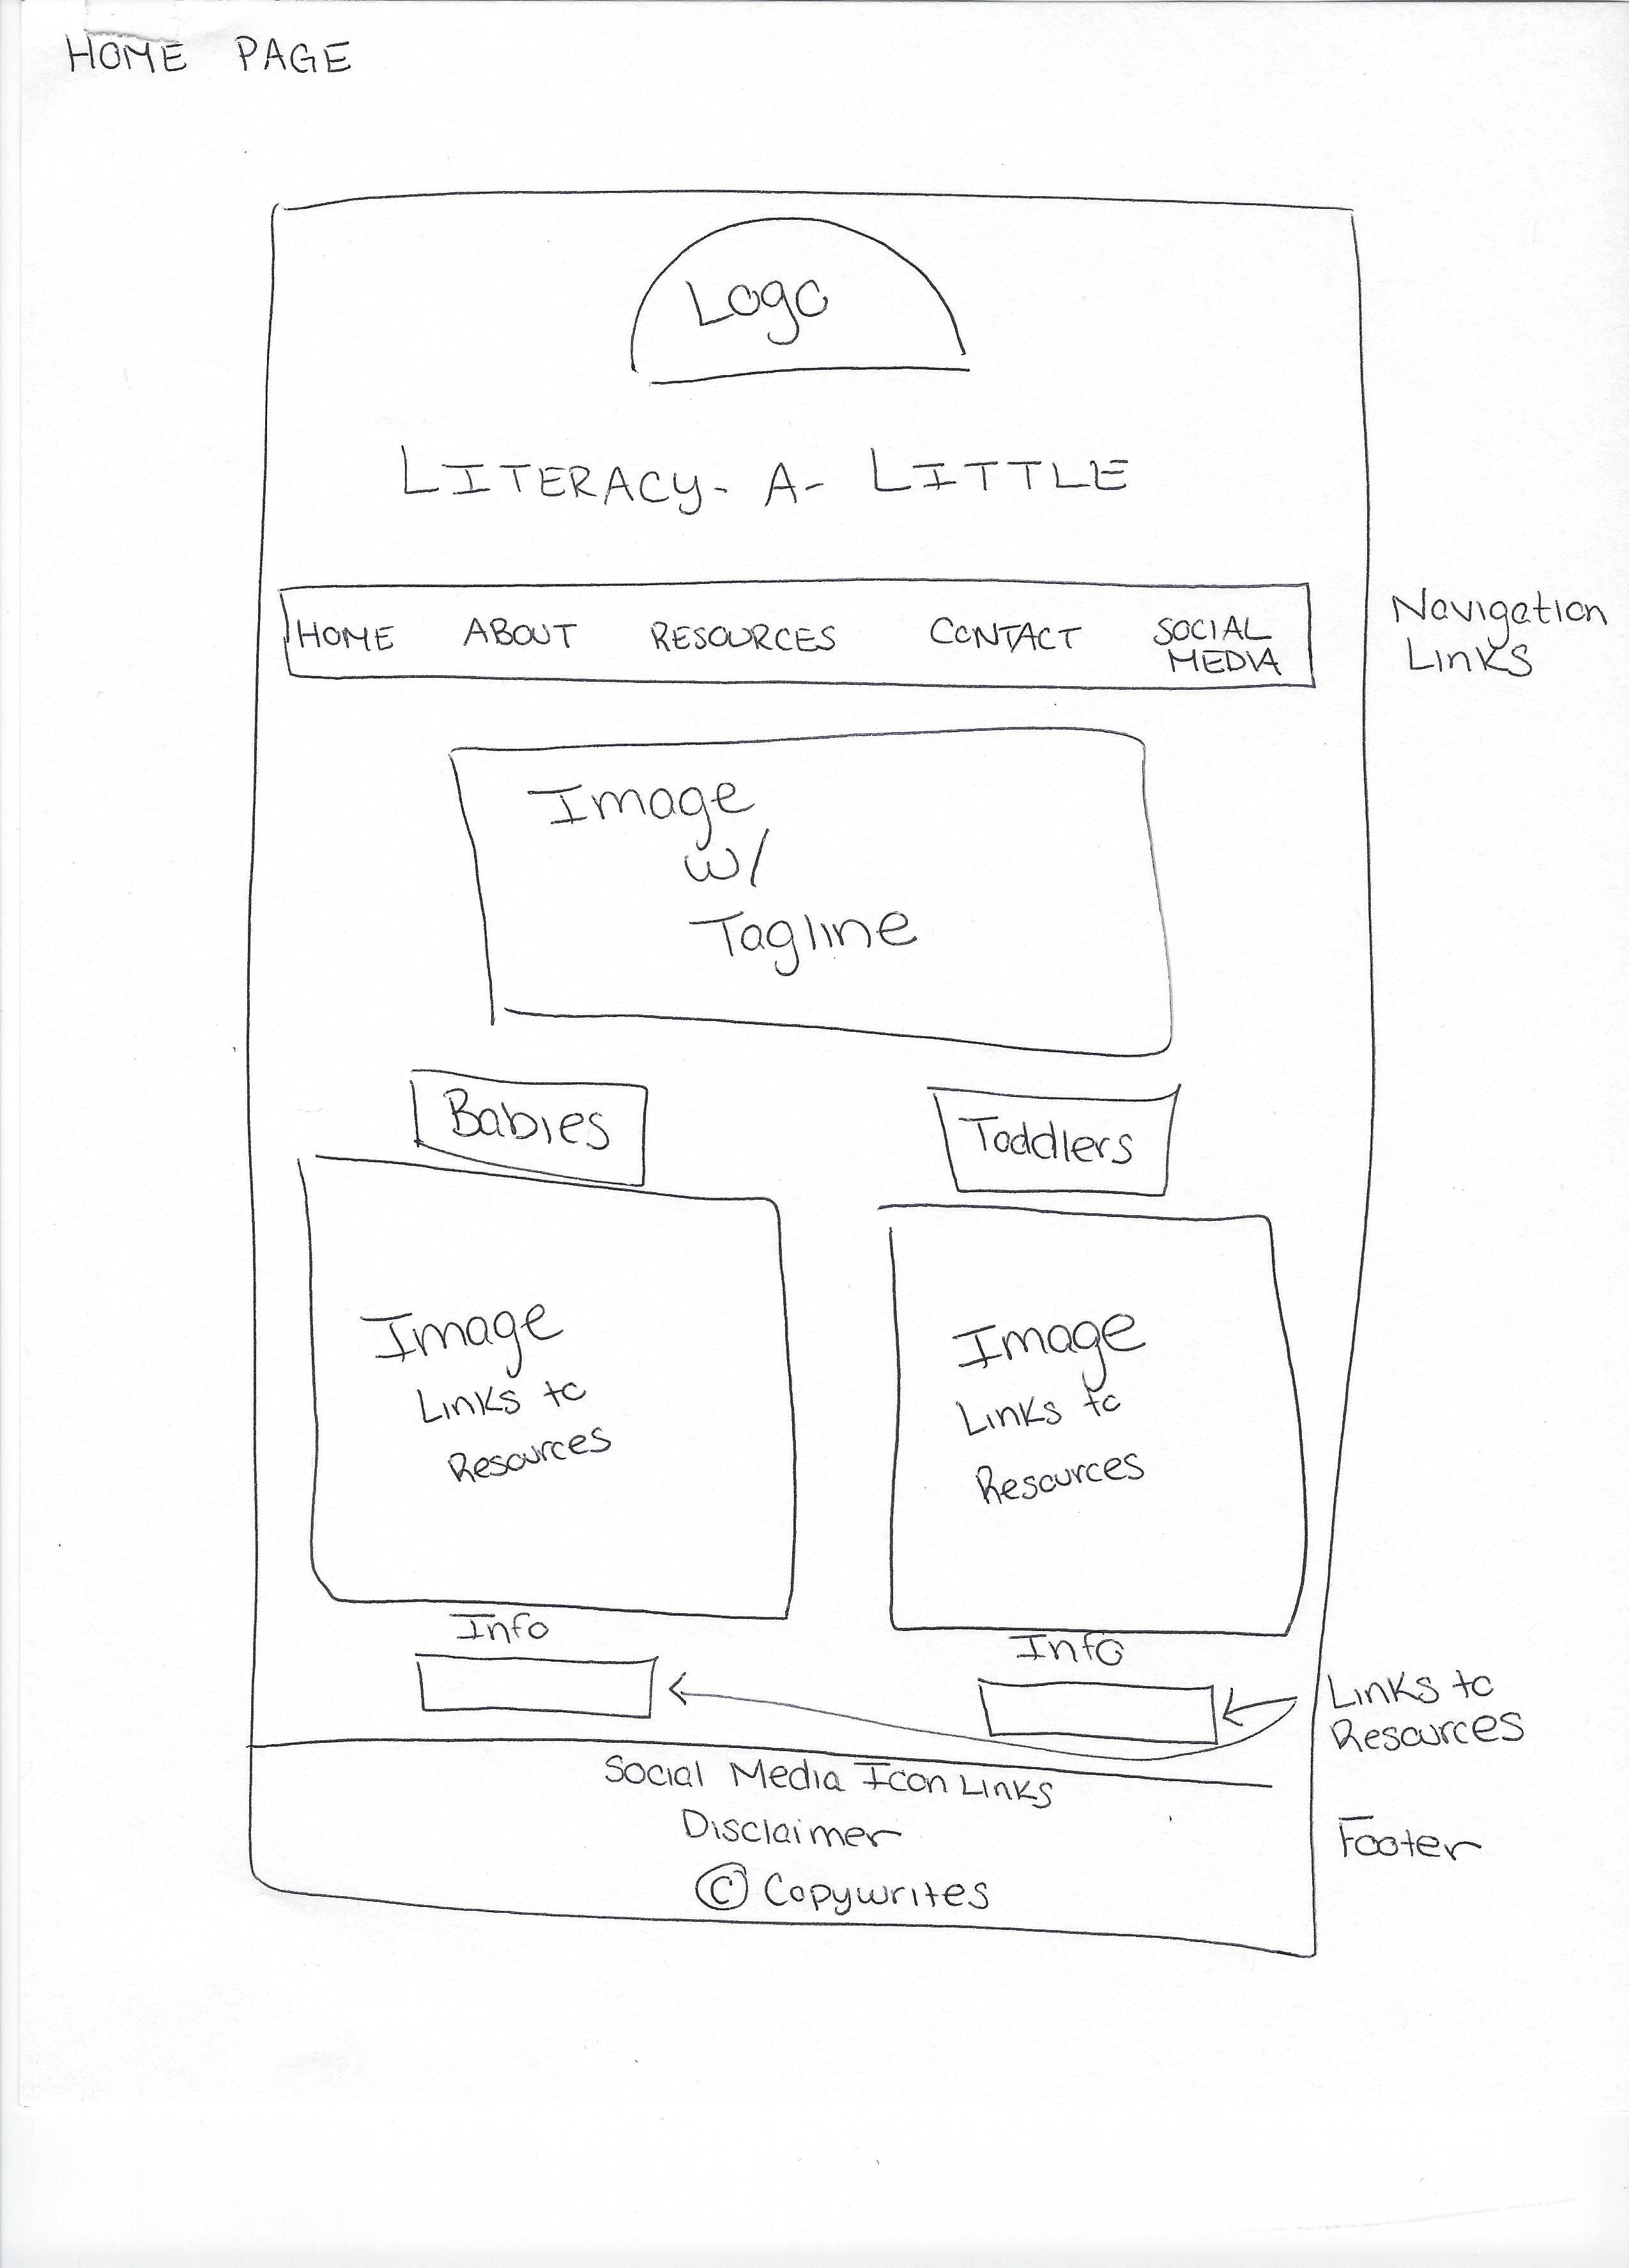 HOME PAGE
Logo
LITERACY-A-LITTLE
HOME ABOUT RESOURCES CONTACT SOCIAL MEDIA
Navigation
Links
Image
w/
Tagline
Babies
Toddlers
Image
Links to
Resources
Image
Links to
Resources
Info
Info
Links to
Resources
Social Media Icon Links
Disclaimer
© Copywrites
Footer